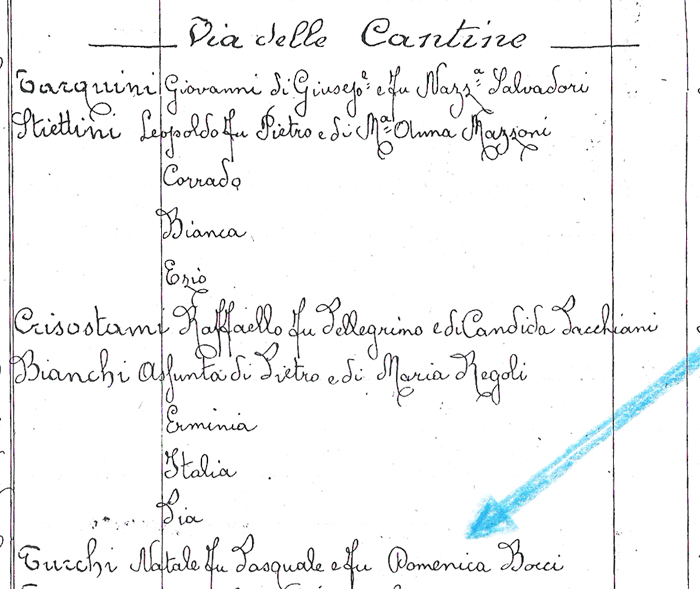 Via delle Cantine
Tarquini Giovanni di Giusep.e e fu Nazz.a Salvadori
Stiettini Leopoldo fu Pietro e di M.a Anna Mazzoni
Corrado
Bianca
Ezio
Crisostami Raffaello fu Pellegrino e di Candida Pacchiani
Bianchi Assunta di Pietro e di Maria Regoli
Erminia
Italia
Pia
Turchi Natale fu Pasquale e fu Domenica Bocci